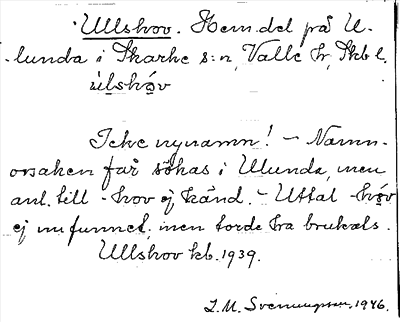 Ullshov. Hem.del på U-
lunda i Skarke s:n, Valle hr, Skb l.
ùlshóv
Icke nynamn! – Namn-
orsaken får sökas i Ulunda, men
anl. till -hov ej känd. – Uttal -hóv
ej nu funnet, men torde ha brukats.
Ullshov kb. 1939.
L. M. Svenungsson, 1946.